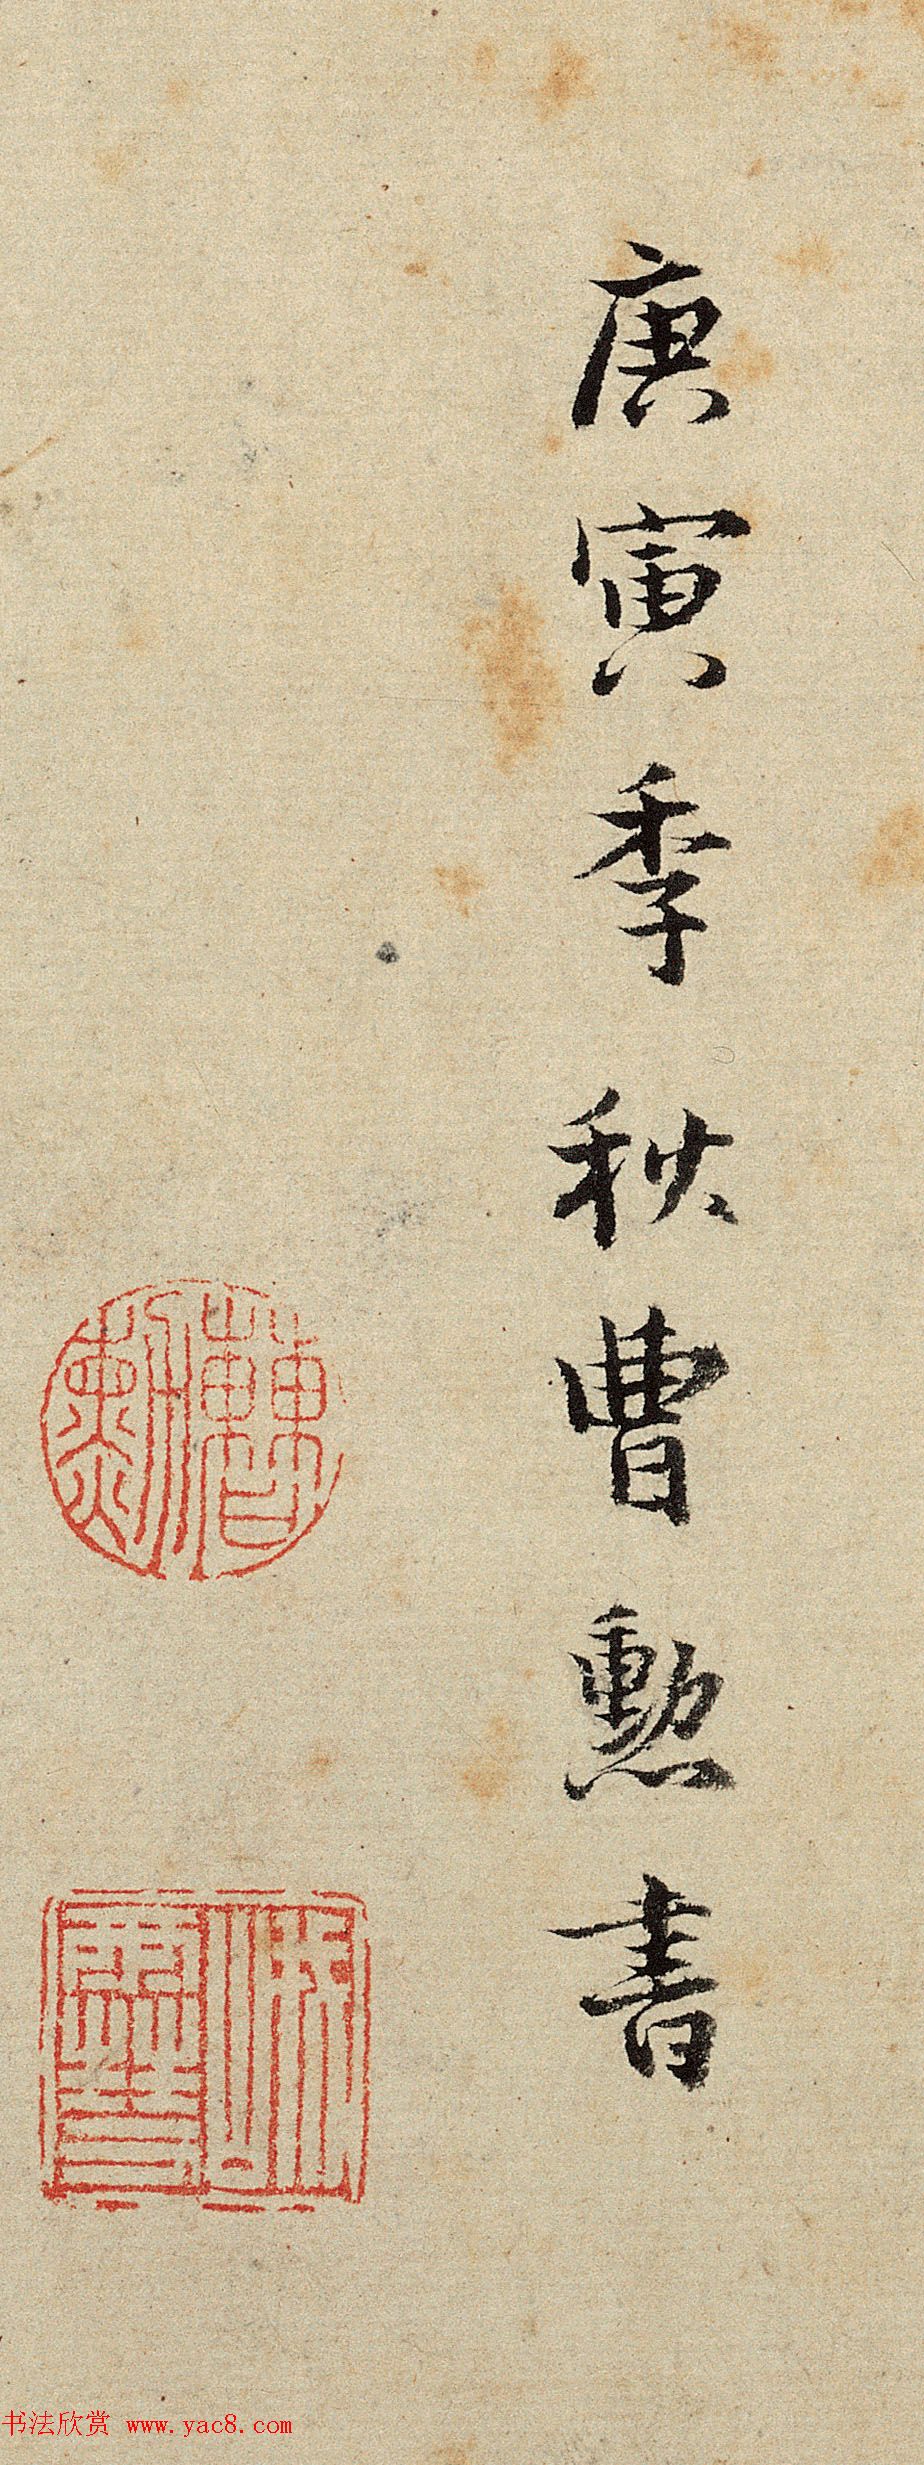 庚寅季秋曹勳書
曹勳
书法欣赏 www.yac8.com